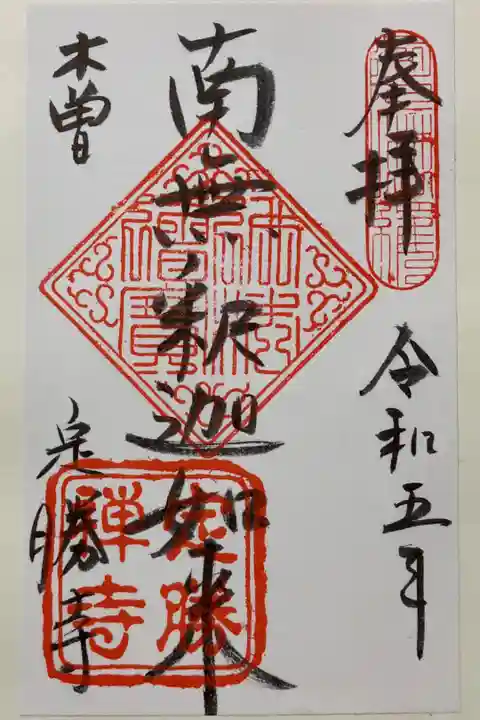 奉拝
令和五年
南無釈迦如来
木曽
定勝寺
佛法僧寶
定勝禅寺